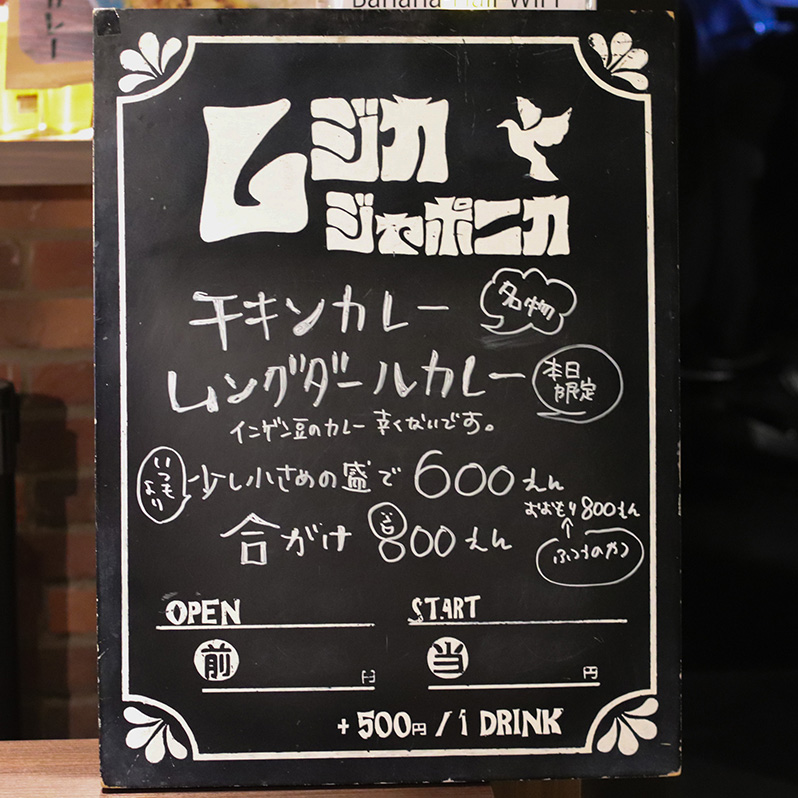 Banana Hall WiFi
カレー
ムジカ
ジャポニカ
チキンカレー 名物
ムングダールカレー 本日限定
インゲン豆のカレー 辛くないです。
いつもより 少し小さめの盛で 600えん
おおもり 800えん
合がけ 800えん ふつうのやつ
OPEN START
前 円 当 円
+500円/1 DRINK